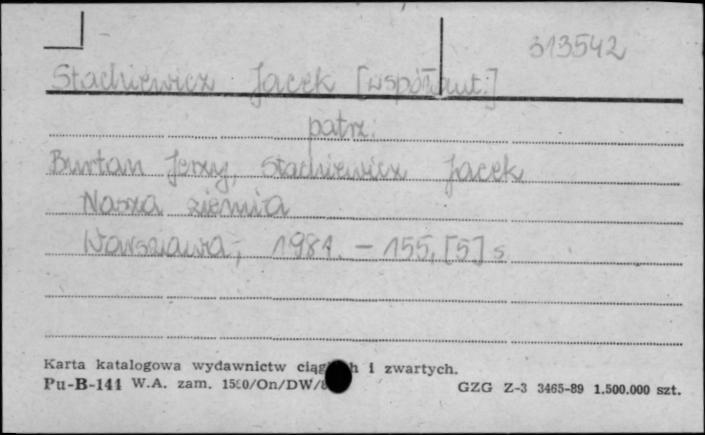 313542
Stachiewicz Jacek [współaut.]
patrz:
Burtan Jerzy, Stachiewicz Jacek
Nasza ziemia
Warszawa, 1981. - 155, [5] s
Karta katalogowa wydawnictw ciąg h i zwartych.
Pu-B-141 W.A. zam. 1580/On/DW/ GZG Z-3 3465-89 1.500.000 szt.